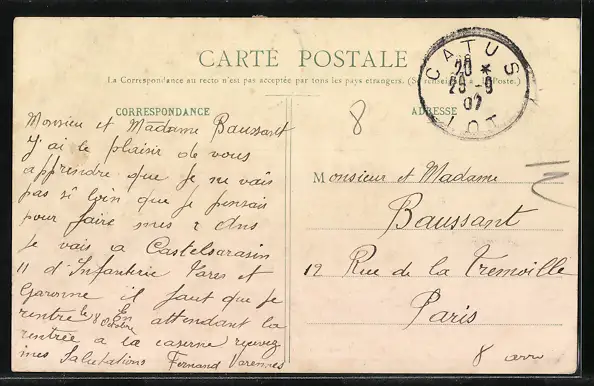 CARTE POSTALE
La Correspondance au recto n'est pas acceptée par tous les pays étrangers. (Se renseigner à la Poste.)
CORRESPONDANCE
Monsieur et Madame Baussant
J'ai le plaisir de vous
apprendre que je ne vais
pas si loin que je pensais
pour faire mes 2 Ans
Je vais a Castelsarasin
11 d'Infanterie Tares et
Garonne il faut que je
rentre le 8 Octobre En attendant la
rentrée a la caserne recevez
mes Salutations Fernand Varennes
ADRESSE
8
CATUS
20 *
29 -9
07
LOT
Monsieur et Madame
Baussant
12 Rue de la Tremoille
Paris
8 arr